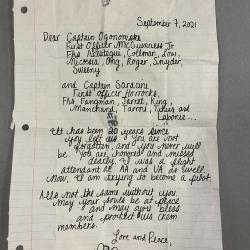 September 7, 2021
Dear Captain Ogonowski
First Officer McGuinness Jr
FAs Arestegui, Collman, Low,
Nicosia, Ong, Roger, Snyder,
Sweeny
and Captain Saracini
First Officer Horrocks,
FAs Fangman, Jarret, King,
Marchand, Tarrou, and
Laborie...
It has been 20 years since
you left us. You are not
forgotten, and you never will
be. You are honored and missed
dearly. I was a flight
attendant at AA and UA as well.
Now, I am trying to become a pilot.
It's not the same without you.
May your souls be at peace
and may you bless
and protect us crew
members.
Love and Peace,